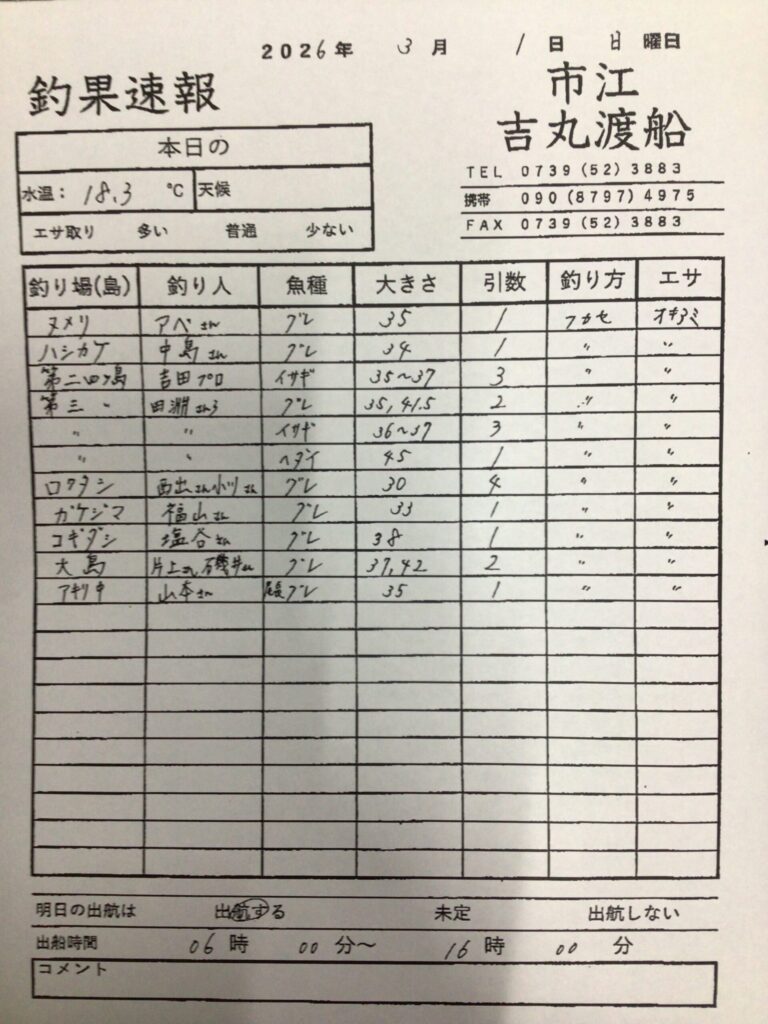 2026年 3月 1日 日曜日
釣果速報
市江
吉丸渡船
TEL 0739(52)3883
携帯 090(8797)4975
FAX 0739(52)3883
本日の
水温: 18.3 ℃ 天候
エサ取り 多い 普通 少ない
釣り場(島) 釣り人 魚種 大きさ 引数 釣り方 エサ
ヌメリ アベさん グレ 35 1 フカセ オキアミ
ハシカケ 中島さん グレ 34 1 〃 〃
第二四ツ島 吉田プロ イサギ 35~37 3 〃 〃
第三 〃 田淵さん グレ 35,41.5 2 〃 〃
〃 〃 イサギ 36~37 3 〃 〃
〃 〃 ヘダイ 45 1 〃 〃
ロクタシ 西出さん小川さん グレ 30 4 〃 〃
ガケジマ 福山さん グレ 33 1 〃 〃
コギダシ 塩谷さん グレ 38 1 〃 〃
大島 片上さん石磯井さん グレ 37,42 2 〃 〃
アキリキ 山本さん 尾長グレ 35 1 〃 〃
明日の出航は 出航する 未定 出航しない
出船時間 06時 00分~ 16時 00分
コメント